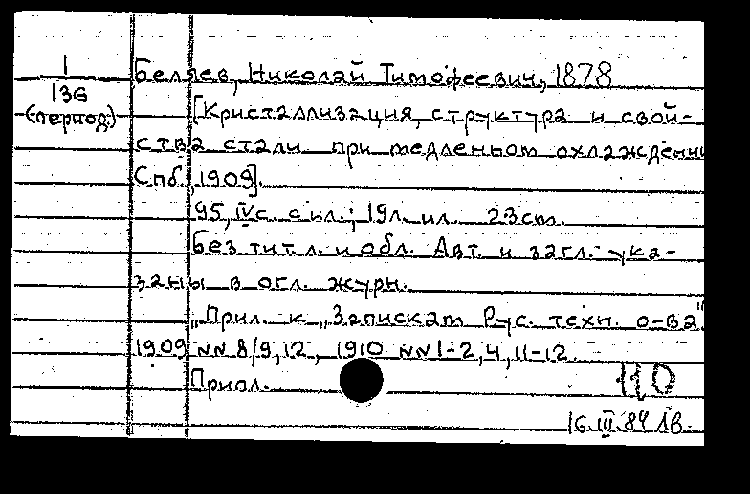 1 Беляев, Николай Тимофеевич, 1878
136
(период.) [Кристаллизация, структура и свой-
ства стали при медленном охлаждении
Спб, 1909].
95, IV с. с ил.; 19 л. ил. 23 cm.
Без тит. л. и обл. Авт. и загл. ука-
заны в огл. журн.
"Прил. к "Запискам Рус. техн. о-ва"
1909 NN 8/9, 12, 1910 NN 1-2, 4, 11-12.
Прил.
16.III.84 Лв.